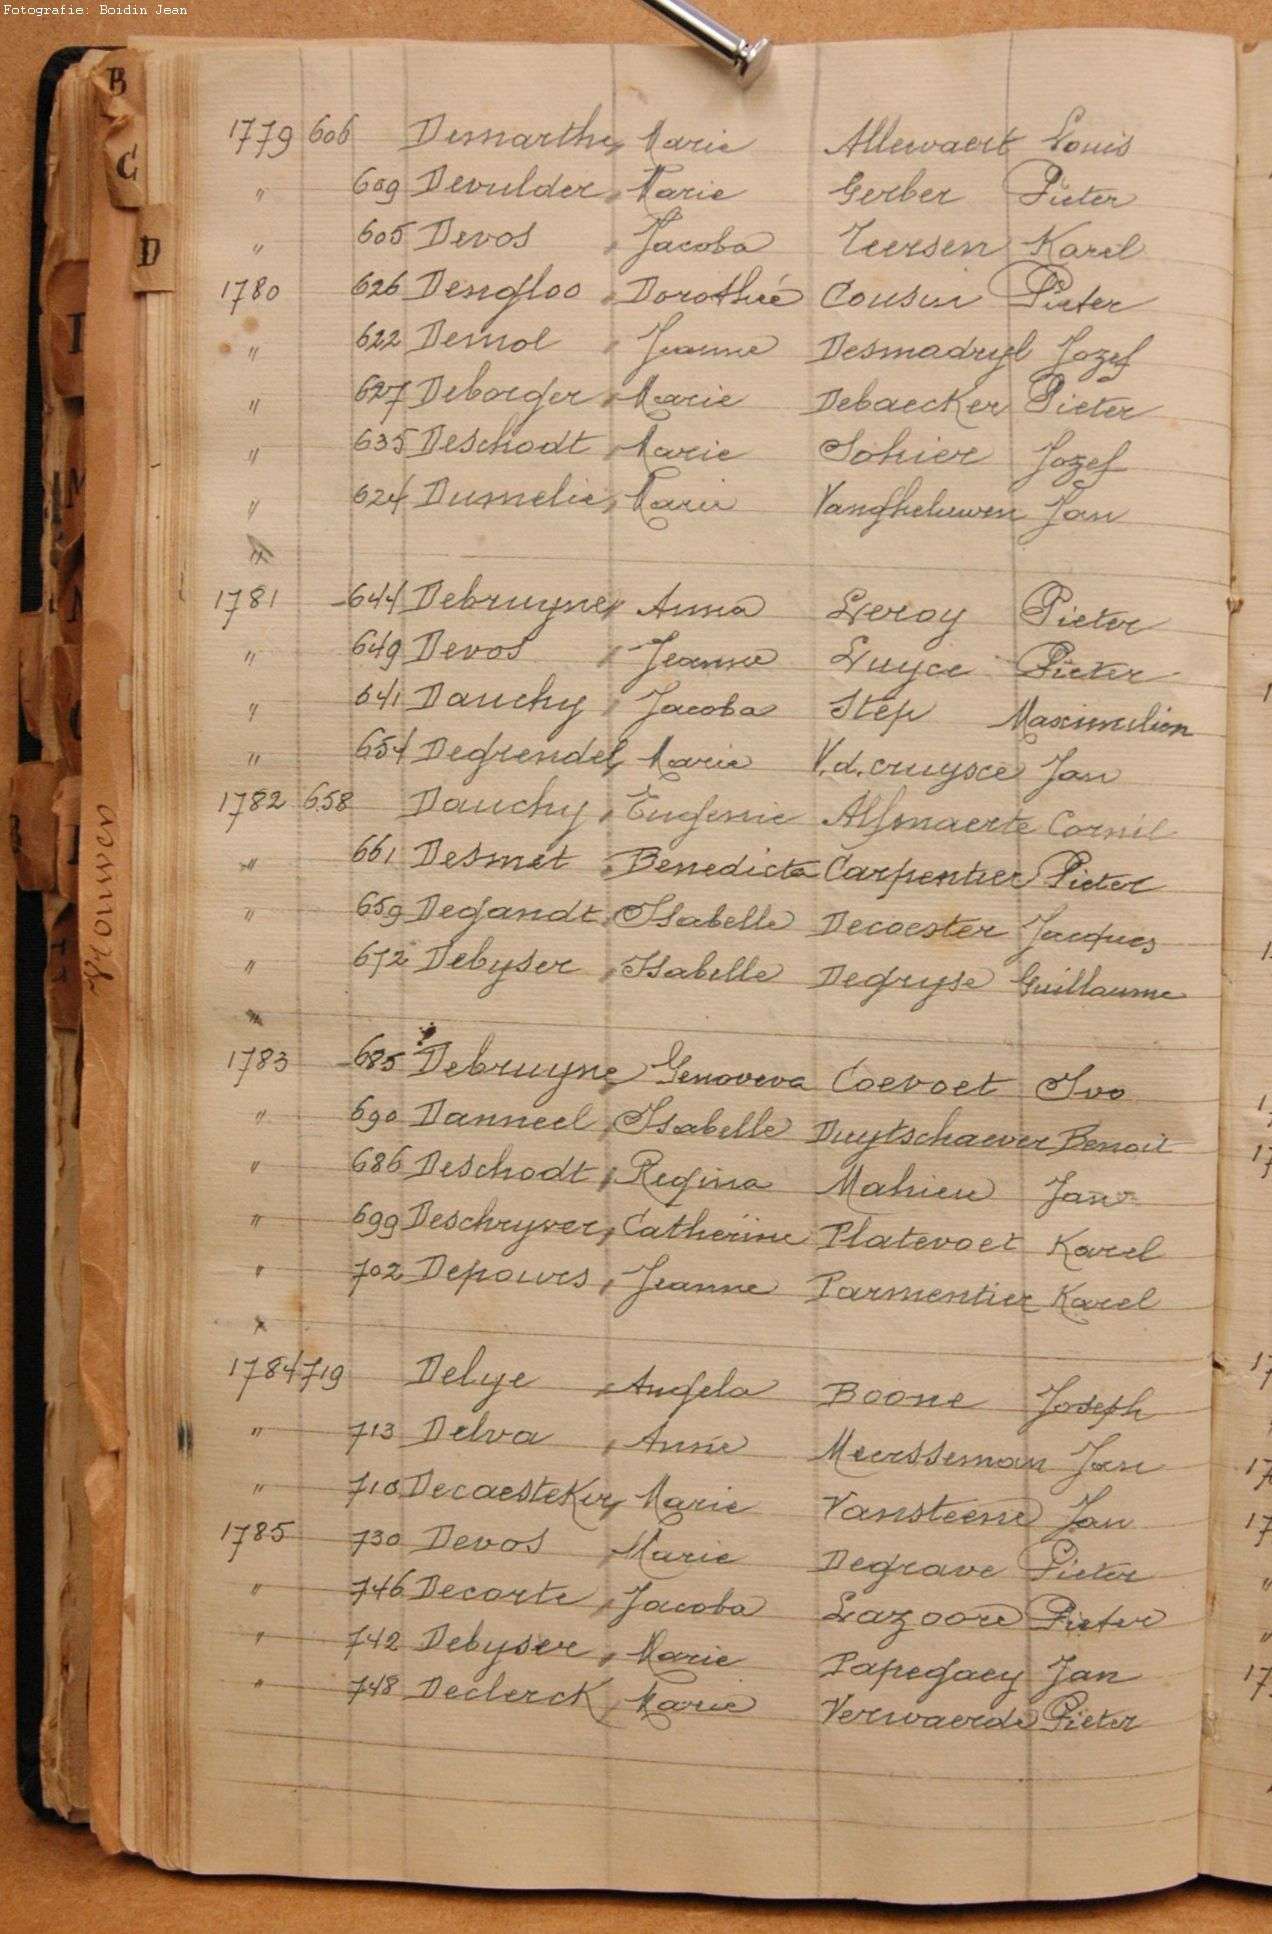 Fotografie: Boidin Jean
B
C
D
Vrouwen
1779 606 Demarthe, Marie Allewaert Louis
" 609 Devulder, Marie Gerber Pieter
" 605 Devos, Jacoba Teersen Karel
1780 626 Dengloo, Dorothée Cousin Pieter
" 622 Demol, Jeanne Desmadryl Jozef
" 627 Deborger, Marie Debaecker Pieter
" 635 Deschodt, Marie Sohier Jozef
" 624 Dumelie, Marie Vangheluwen Jan
"
1781 644 Debruyne, Anna Leroy Pieter
" 649 Devos, Jeanne Luyce Pieter
" 641 Dauchy, Jacoba Step Maximilien
" 654 Degrendel, Marie V.d.cruysce Jan
1782 658 Dauchy, Eugenie Alsmaerte Cornil
" 661 Desmet, Benedicta Carpentier Pieter
" 659 Degandt, Isabelle Decoester Jacques
" 672 Debyser, Isabelle Degryse Guillaume
"
1783 685 Debruyne, Genoveva Coevoet Ivo
" 690 Danneel, Isabelle Duytschaever Benoit
" 686 Deschodt, Regina Mahieu Jan
" 699 Deschryver, Catherine Platevoet Karel
" 702 Depours, Jeanne Parmentier Karel
"
1784 719 Delye, Angela Boone Joseph
" 713 Delva, Anne Meersseman Jan
" 710 Decaesteker, Marie Vansteene Jan
1785 730 Devos, Marie Degrave Pieter
" 746 Decorte, Jacoba Lazoore Pieter
" 742 Debyser, Marie Papegaey Jan
" 748 Declerck, Marie Verwaerde Pieter